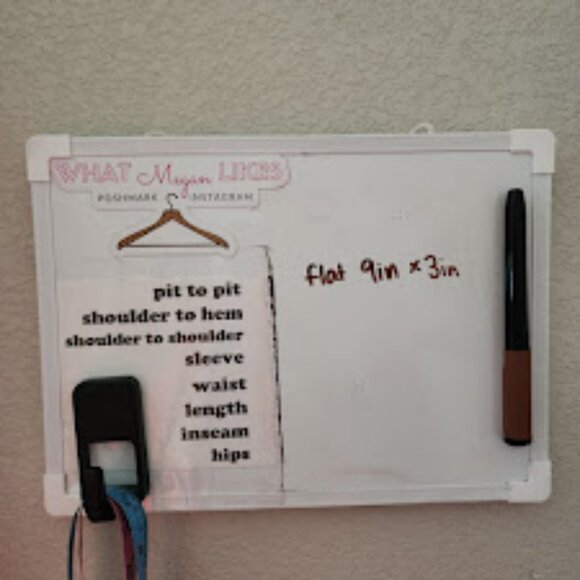 WHAT Megan LIKES
POSHMARK INSTAGRAM
pit to pit
shoulder to hem
shoulder to shoulder
sleeve
waist
length
inseam
hips
flat 9in x 3in